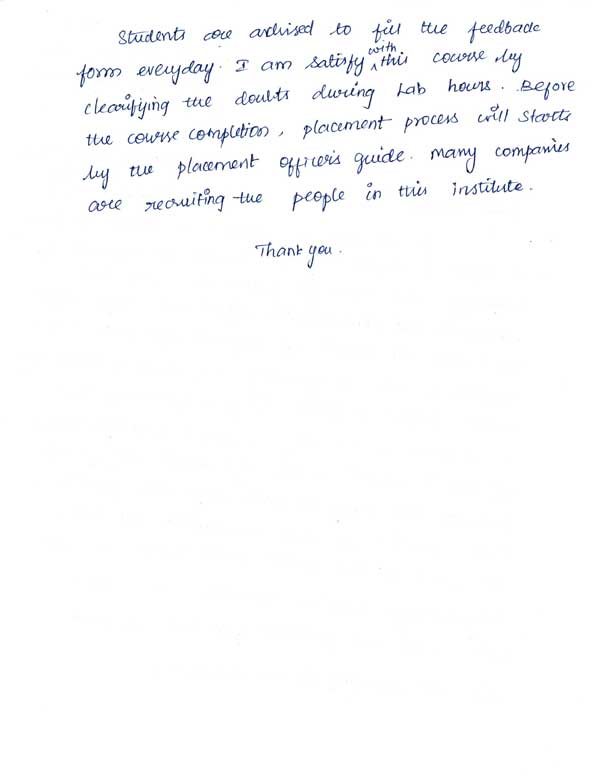 Students are advised to fill the feedback
form everyday. I am satisfy with this course by
clearifying the doubts during Lab hours. Before
the course completion, placement process will starts
by the placement officer's guide. Many companies
are recruiting the people in this institute.
Thank you.